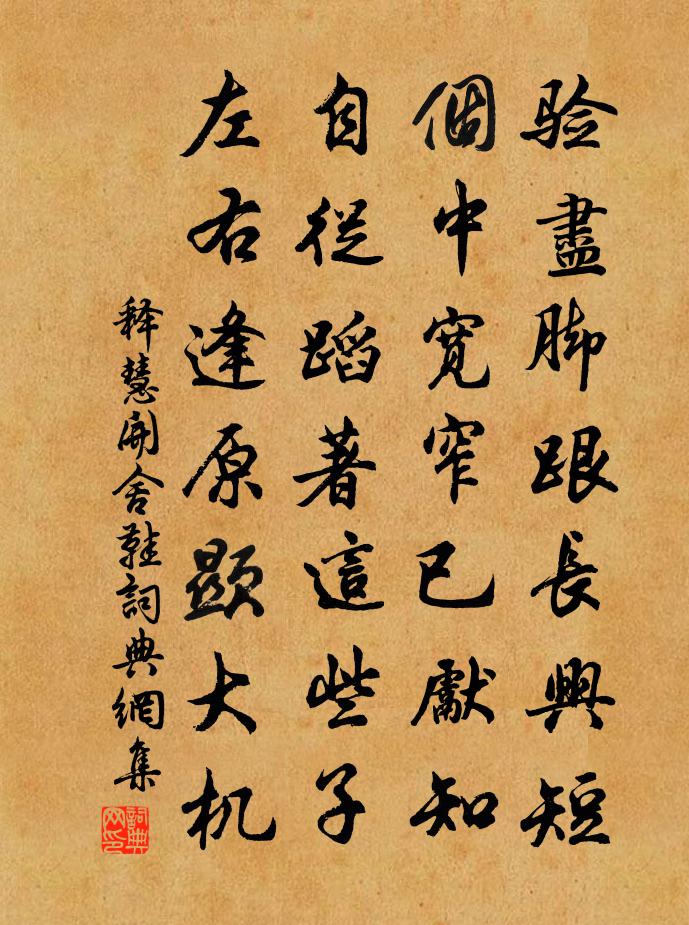 验盡脚跟長與短
個中寬窄已獻知
自從蹈著這些子
左右逢原顯大机
释慧開舍鞋詞典網集
詞典网印